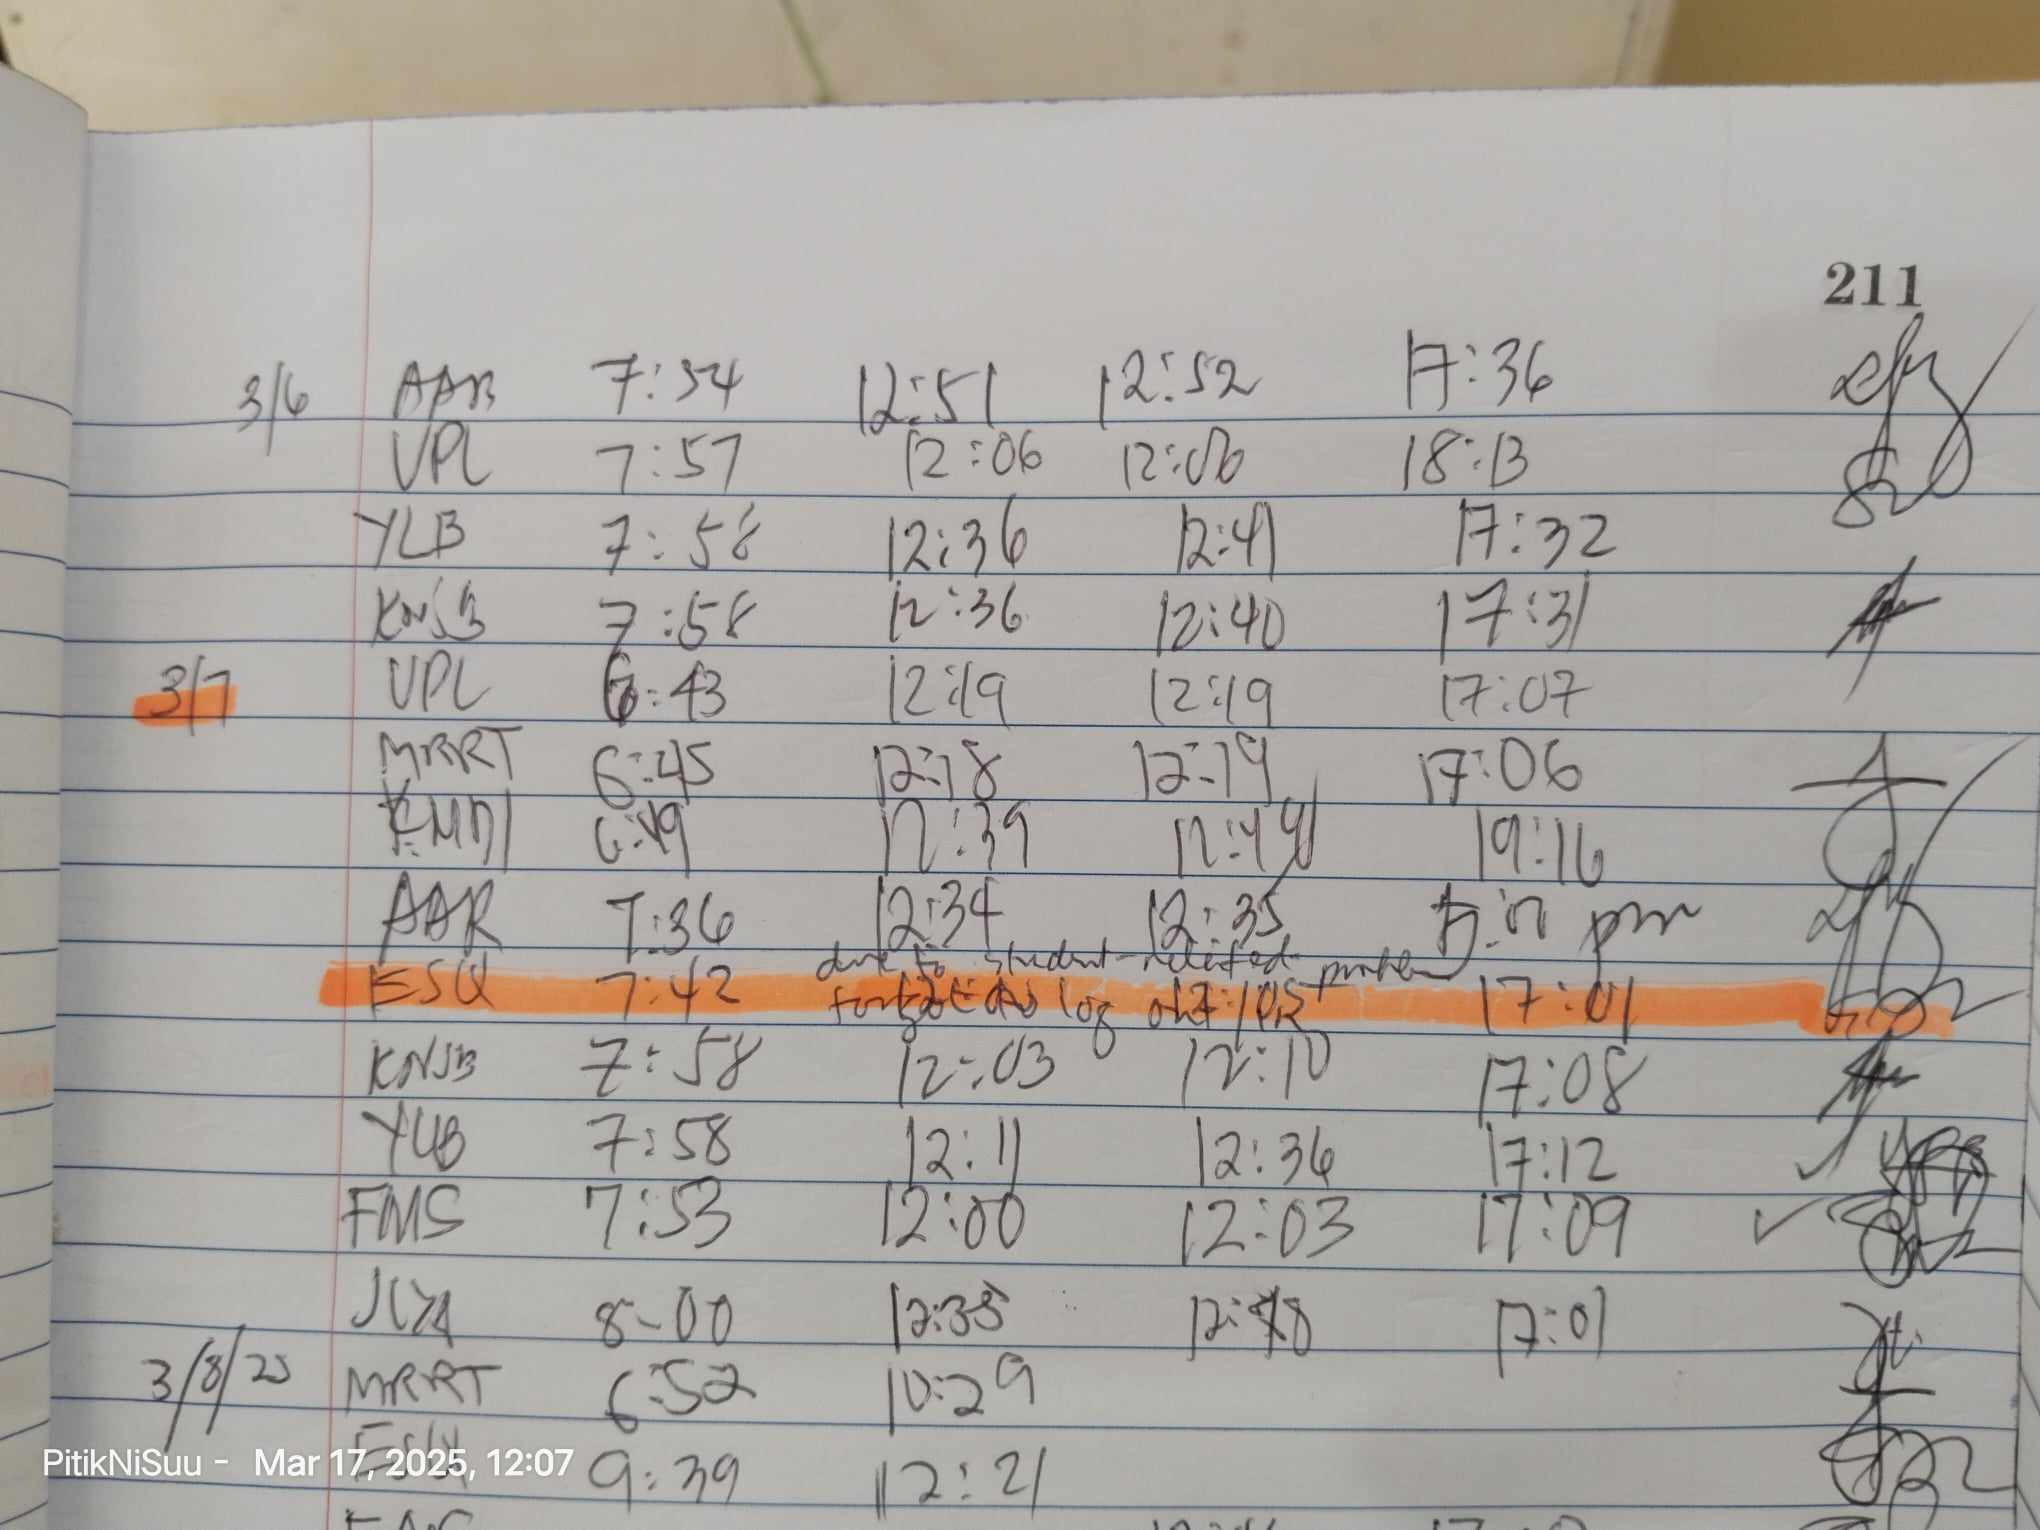 211
3/6 AAR 7:34 12:51 12:52 17:36
VPL 7:57 12:06 12:06 18:13
YLB 7:58 12:36 12:41 17:32
KNSB 7:58 12:36 12:40 17:31
3/7 VPL 6:43 12:19 12:19 17:07
MRRT 6:45 12:18 12:19 17:06
6:49 12:39 19:16
AAR 7:36 12:34 12:35 pm
due to student-related problem
ESQ 7:42 log 17:01
KNSB 7:58 12:03 12:10 17:08
YLB 7:58 12:11 12:36 17:12
FMS 7:53 12:00 12:03 17:09
8-00 12:35 17:01
3/8/25 MRRT 6:52 10:29
ESQ 9:39 12:21
PitikNiSuu - Mar 17, 2025, 12:07